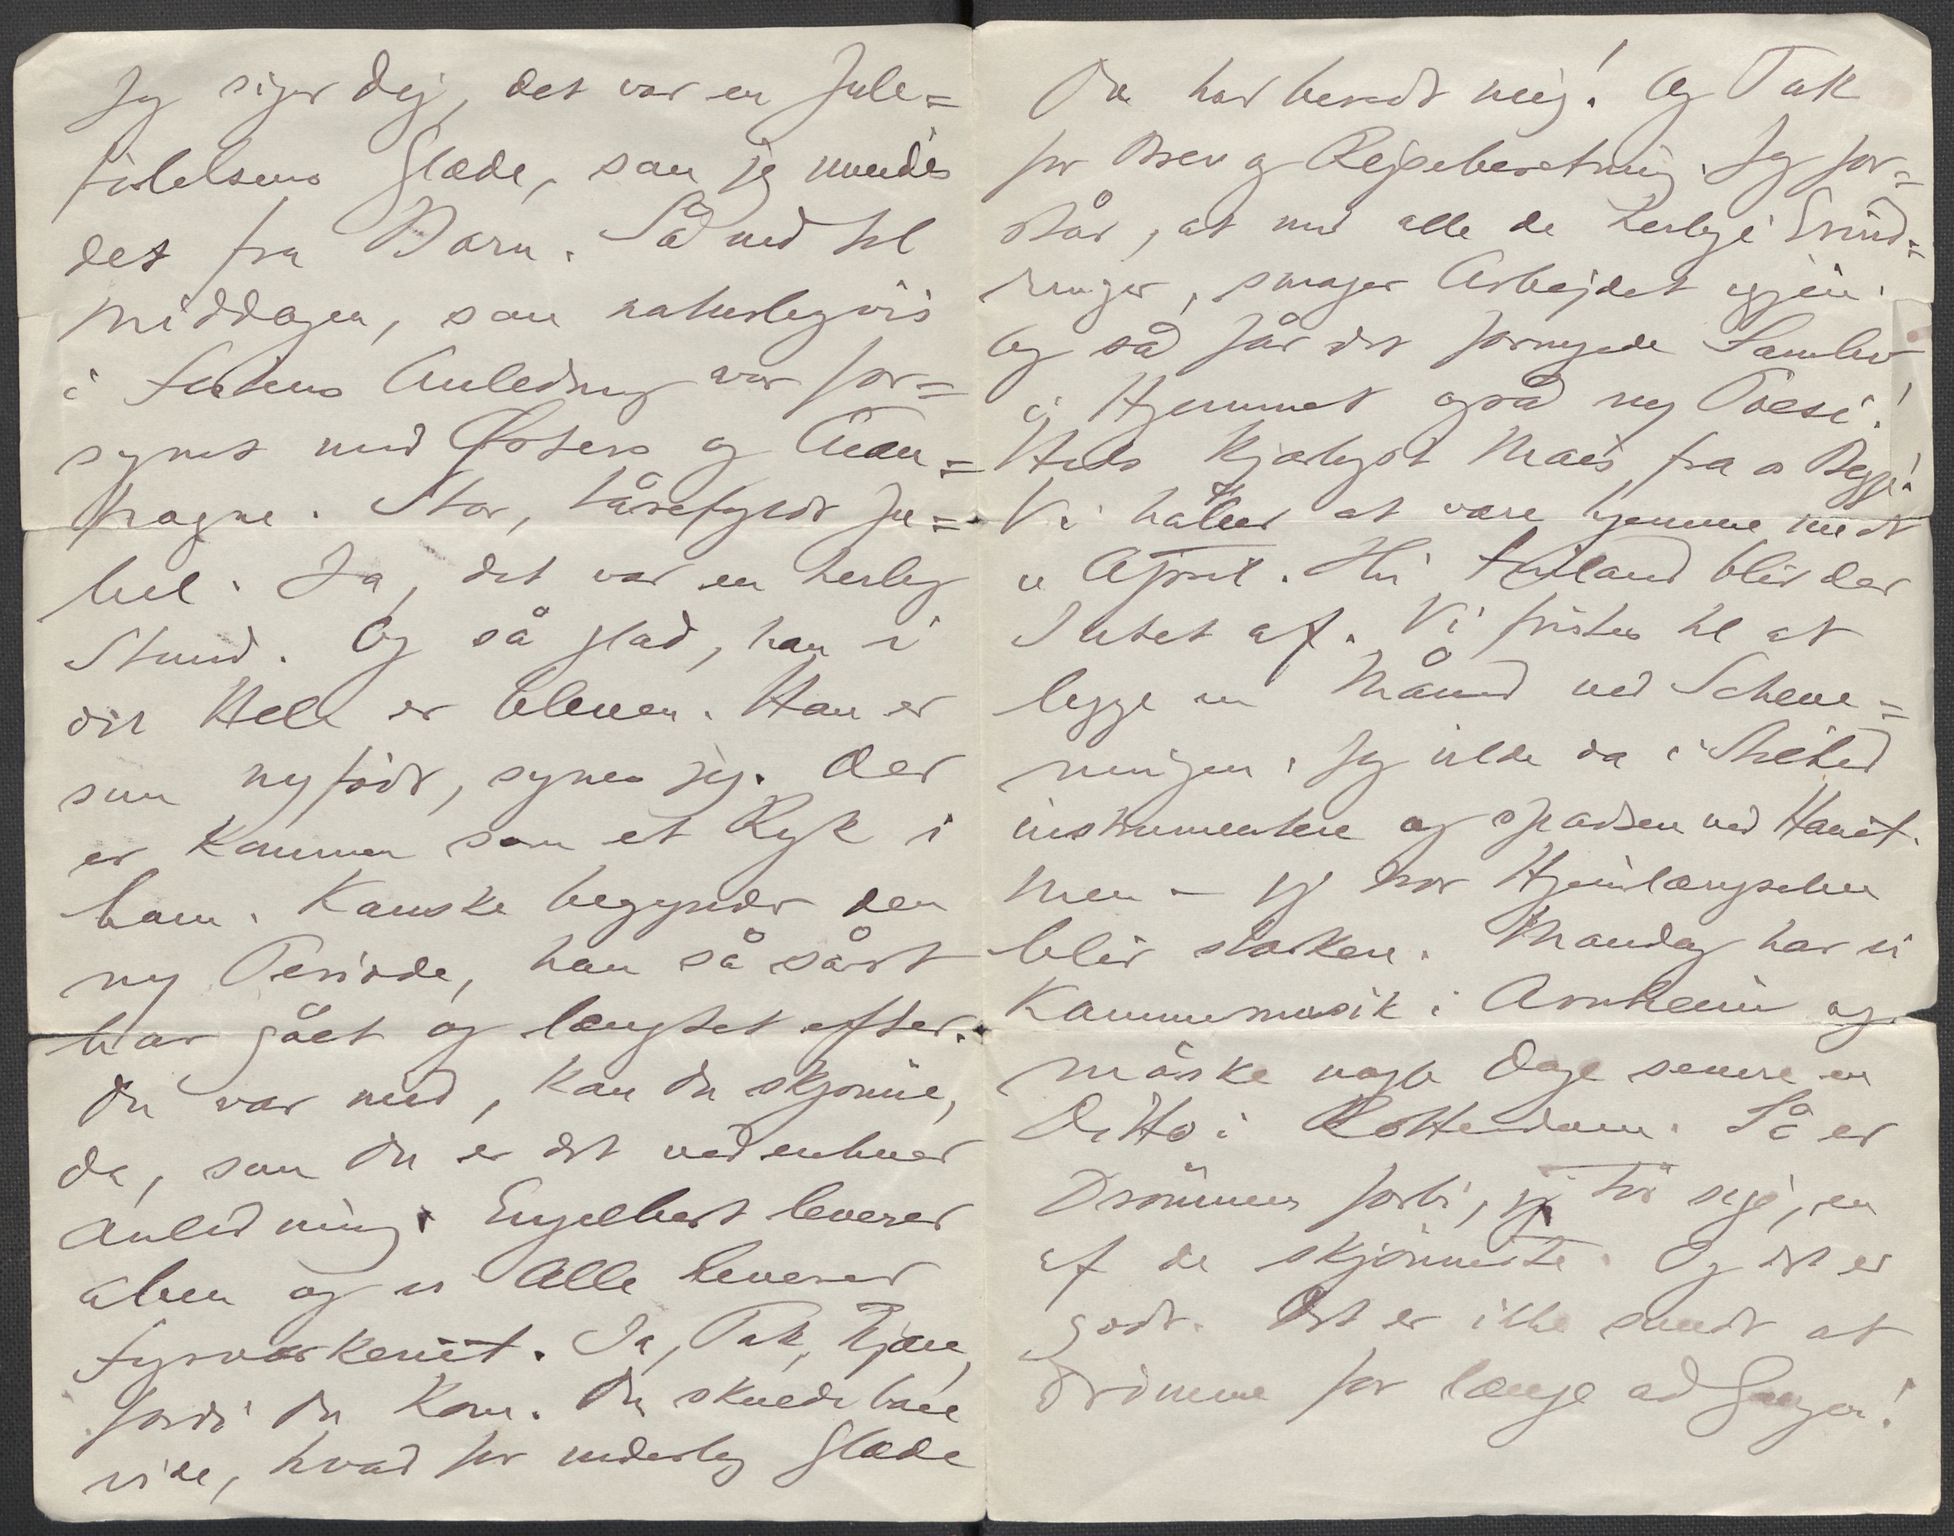 Jeg siger Dig, det var en Jule=
følelsens Glæde, som jeg mindes
det fra Barn. Så ned til
Middagen, som naturligvis
i Festens Anledning var for=
synet med Østers og Cham=
pagne. Stor, tårefyldt Ju=
bel. Ja, det var en herlig
Stund. Og så glad, han i
det Hele er bleven. Han er
som nyfødt, synes jeg. Der
er kommen som et Ryk i
ham. Kanske begynder den
ny Periode, han så sårt
har gået og længtet efter.
Du var med, kan Du skjønne,
da, som Du er det ved enhver
Anledning. Engelbert leverer
aben og vi Alle leverer
fyrværkeriet. Ja, Tak, Kjære,
fordi Du kom. Du skulde bare
vide, hvad for inderlig Glæde
Du har beredt mig! Og Tak
for Brev og Rejseberetning. Jeg for=
står, at med alle de herlige Erind=
ringer, smager Arbejdet igjen.
Og så får det fornyede Samliv
i Hjemmet også ny Poesi!
Hils kjærligst Mais fra os Begge!
Vi håber at være hjemme midt
i April. Hvi Finland blir der
Intet af. Vi fristes til at
lægge en Måned ved Scheve=
ningen. Jeg vilde da i Stilhed
instrumentere og spadsere ved Havet.
Men – jeg tror Hjemlængselen
blir stærkere. Mandag har vi
Kammermusik i Arnheim og
måske nogle Dage senere en
Ditto i Rotterdam. Så er
Drømmen forbi, jeg tør sige, en
af de skjønneste. Og det er
godt. Det er ikke sundt at
drømme for længe ad Gangen!